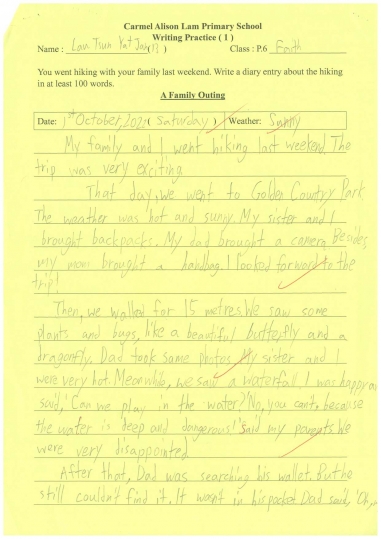 Carmel Alison Lam Primary School
Writing Practice ( 1 )
Name : Lam Tsun Yat Class : P.6 Faith
You went hiking with your family last weekend. Write a diary entry about the hiking
in at least 100 words.
A Family Outing
Date: 1st October, 202 ( Saturday ) Weather: Sunny
My family and I went hiking last weekend. The
trip was very exciting.
That day, we went to Golden Country Park.
The weather was hot and sunny. My sister and I
brought backpacks. My dad brought a camera. Besides
my mom brought a handbag. I looked forward to the
trip!
Then, we walked for 15 metres. We saw some
plants and bugs, like a beautiful butterfly and a
dragonfly. Dad took some photos. My sister and I
were very hot. Meanwhile, we saw a waterfall. I was happy
said, 'Can we play in the water?' 'No, you can't, because
the water is deep and dangerous!' said my parents. We
were very disappointed.
After that, Dad was searching his wallet. But he
still couldn't find it. It wasn't in his pocket. Dad said, 'Oh,